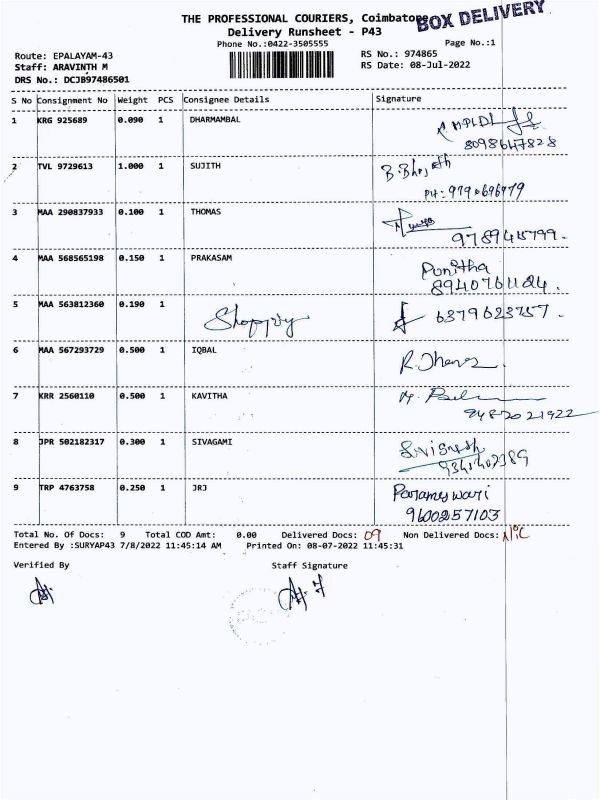 THE PROFESSIONAL COURIERS, Coimbatore
BOX DELIVERY
Delivery Runsheet - P43
Phone No.:0422-3505555
Page No.:1
Route: EPALAYAM-43
RS No.: 974865
Staff: ARAVINTH M
RS Date: 08-Jul-2022
DRS No.: DCJB97486501
S No Consignment No Weight PCS Consignee Details Signature
1 KRG 925689 0.090 1 DHARMAMBAL
8098647828
2 TVL 9729613 1.000 1 SUJITH
PH: 9790696979
3 MAA 290837933 0.100 1 THOMAS
4 MAA 568565198 0.150 1 PRAKASAM Punitha
5 MAA 563812360 0.190 1 6379623757.
6 MAA 567293729 0.500 1 IQBAL
7 KRR 2560110 0.500 1 KAVITHA
9487021922
8 JPR 502182317 0.300 1 SIVAGAMI
9 TRP 4763758 0.250 1 JRJ Parameswari
9600257103
Total No. Of Docs: 9 Total COD Amt: 0.00 Delivered Docs: 09 Non Delivered Docs: Nil
Entered By :SURYAP43 7/8/2022 11:45:14 AM Printed On: 08-07-2022 11:45:31
Verified By Staff Signature